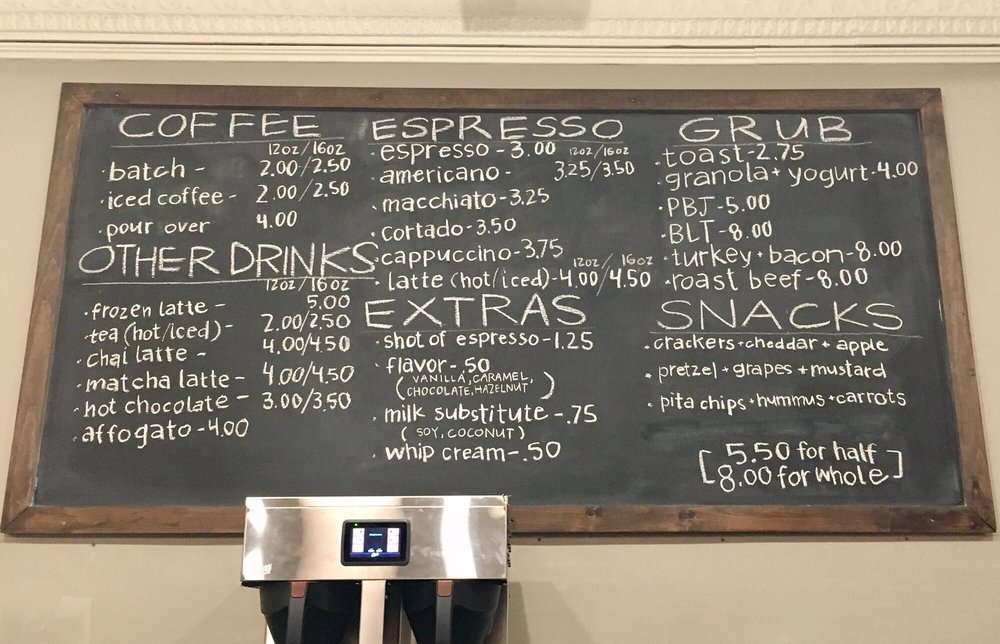 COFFEE
12oz/16oz
·batch - 2.00/2.50
·iced coffee - 2.00/2.50
·pour over 4.00
OTHER DRINKS
12oz/16oz
·frozen latte - 5.00
·tea (hot/iced) - 2.00/2.50
·chai latte - 4.00/4.50
·matcha latte - 4.00/4.50
·hot chocolate - 3.00/3.50
·affogato - 4.00
ESPRESSO
·espresso - 3.00 12oz/16oz
·americano - 3.25/3.50
·macchiato - 3.25
·cortado - 3.50
·cappuccino - 3.75
12oz/16oz
·latte (hot/iced) - 4.00/4.50
EXTRAS
·shot of espresso - 1.25
·flavor - .50
(VANILLA, CARAMEL,
CHOCOLATE, HAZELNUT)
·milk substitute - .75
(SOY, COCONUT)
·whip cream - .50
GRUB
·toast - 2.75
·granola + yogurt - 4.00
·PBJ - 5.00
·BLT - 8.00
·turkey + bacon - 8.00
·roast beef - 8.00
SNACKS
·crackers + cheddar + apple
·pretzel + grapes + mustard
·pita chips + hummus + carrots
[5.50 for half
8.00 for whole]